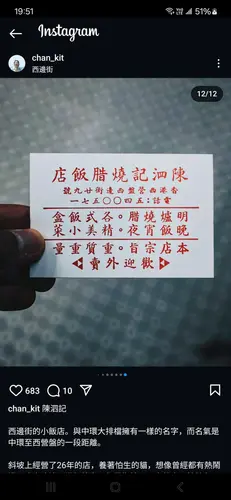 19:51
51%
Instagram
chan_kit
西邊街
12/12
陳泗記燒腊飯店
香港西營盤西邊街廿九號
電話:五四〇〇五七一
明爐燒腊。各式飯盒
晚飯宵夜。精美小菜
本店宗旨。重質重量
歡迎外賣
683
10
chan_kit 陳泗記
西邊街的小飯店。與中環大排檔擁有一樣的名字，而名氣是
中環至西營盤的一段距離。
斜坡上經營了26年的店，養著怕生的貓，想像曾經都有熱鬧